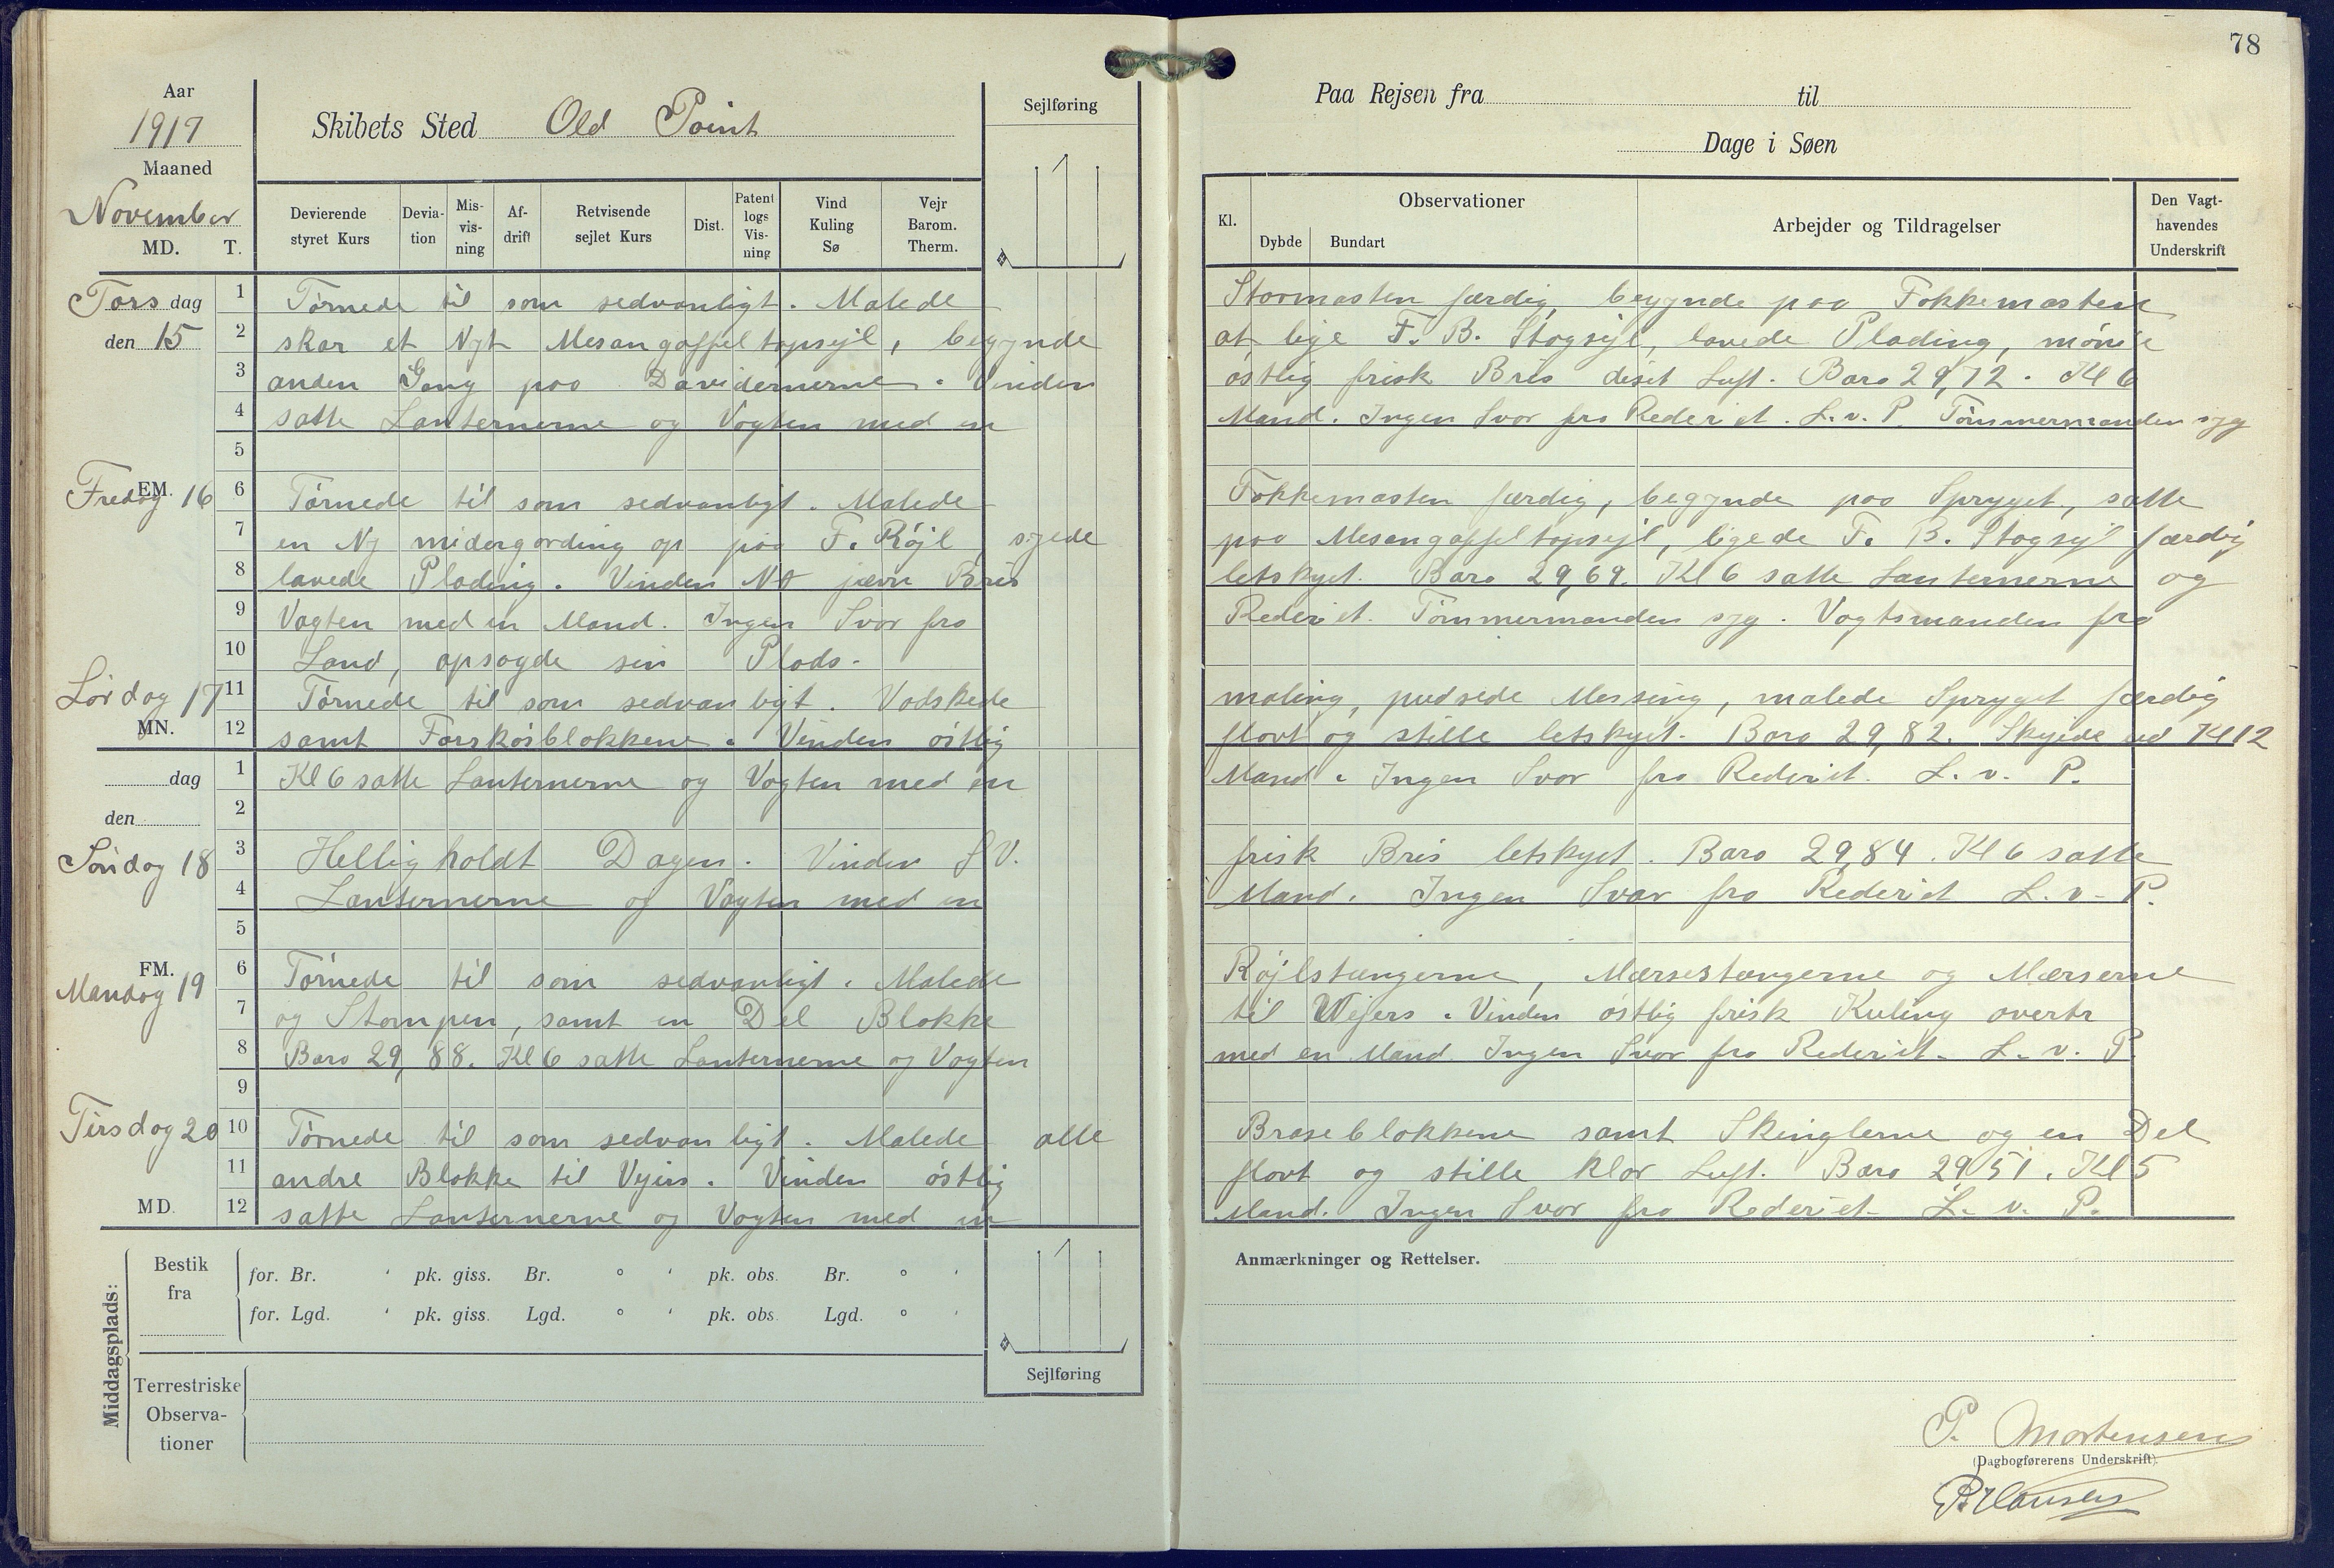 78
Aar
1917
Maaned
November
MD. T.
Skibets Sted Old Point
Sejlføring
Paa Rejsen fra til
Dage i Søen
Devierende styret Kurs
Deviation
Misvisning
Afdrift
Retvisende sejlet Kurs
Dist.
Patent logs Visning
Vind Kuling Sø
Vejr Barom. Therm.
Kl.
Observationer
Dybde Bundart
Arbejder og Tildragelser
Den Vagthavendes Underskrift
Torsdag den 15
1 Tørnede til som sedvanligt. Malede Stormasten færdig, begynde paa Fokkemasten
2 skar et Nyt Mesangaffeltopsejl, begynde at lige F. B. Stagsejl, lavede Plading, mønie
3 anden Gang paa Davidernerne. Vinden østlig frisk Bris diset Luft. Baro 29,72. Kl 6
4 satte Lanternerne og Vogten med en Mand. Ingen Svar fra Rederiet. L. v. P. Tømmermanden syg
5
EM.
Fredag 16
6 Tørnede til som sedvanligt. Malede Fokkemasten færdig, begynde paa Spryget, satte
7 en Ny midergording op paa F. Røjl, syede paa Mesangaffeltopsejl, ligede F. B. Stagsejl færdig
8 lavede Plading. Vinden NO jævn Bris letskyet. Baro 29,69. Kl 6 satte Lanternerne og
9 Vagten med en Mand. Ingen Svar fra Rederiet. Tømmermanden syg. Vagtsmanden fra
10 Land, opsagde sin Plads.
Lørdag 17
11 Tørnede til som sedvanligt. Vadskede maling, pudsede Messing, malede Spryget færdig
MN.
12 samt Forskøsblokkene. Vinden østlig flovt og stille letskyet. Baro 29,82. Skyede ved Kl 12
dag
den
1 Kl 6 satte Lanternerne og Vogten med en Mand. Ingen Svar fra Rederiet. L. v. P.
2
Søndag 18
3 Helligholdt Dagen. Vinden SV. frisk Bris letskyet. Baro 29,84. Kl 6 satte
4 Lanternerne og Vagten med en Mand. Ingen Svar fra Rederiet L. v. P.
5
FM.
Mandag 19
6 Tørnede til som sedvanligt. Malede Røjlstængerne, Mærsestængerne og Mærserne
7 og Stampen, samt en Del Blokke til Wejers. Vinden østlig frisk Kuling overtr
8 Baro 29,88. Kl 6 satte Lanternerne og Vogten med en Mand Ingen Svar fra Rederiet. L. v. P.
9
Tirsdag 20
10 Tørnede til som sedvanligt. Malede alle Braseblokkene samt Skinglerne og en Del
11 andre Blokke til Vyirs. Vinden østlig flovt og stille klar Luft. Baro 29,51. Kl 5
MD.
12 satte Lanternerne og Vogten med en Mand. Ingen Svar fra Rederiet. L. v. P.
Middagsplads:
Bestik fra
for. Br. ' pk. giss. Br. ° ' pk. obs. Br. ° '
for. Lgd. ' pk. giss. Lgd. ° ' pk. obs. Lgd. ° '
Sejlføring
Terrestriske Observationer
Anmærkninger og Rettelser.
P. Mortensen
(Dagbogførerens Underskrift).
P. Hansen